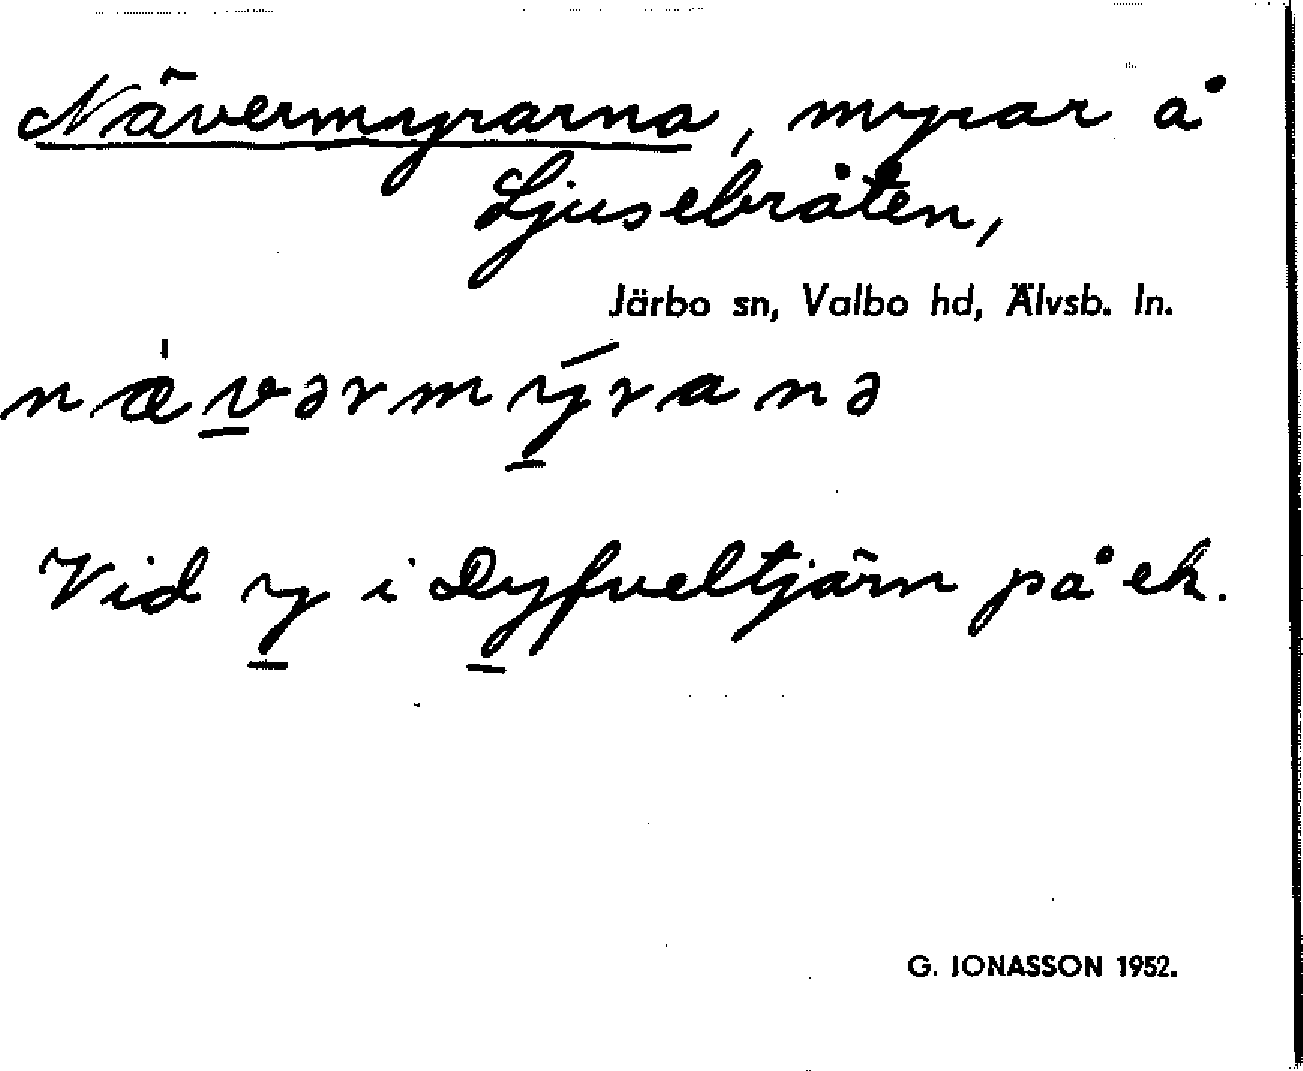 Nävermyrarna, myrar å
Ljusebråten,
Järbo sn, Valbo hd, Älvsb. ln.
næ̍v̲ərmý̲ranə
Vid y̲ i Dy̲fveltjärn på ek.
G. JONASSON 1952.